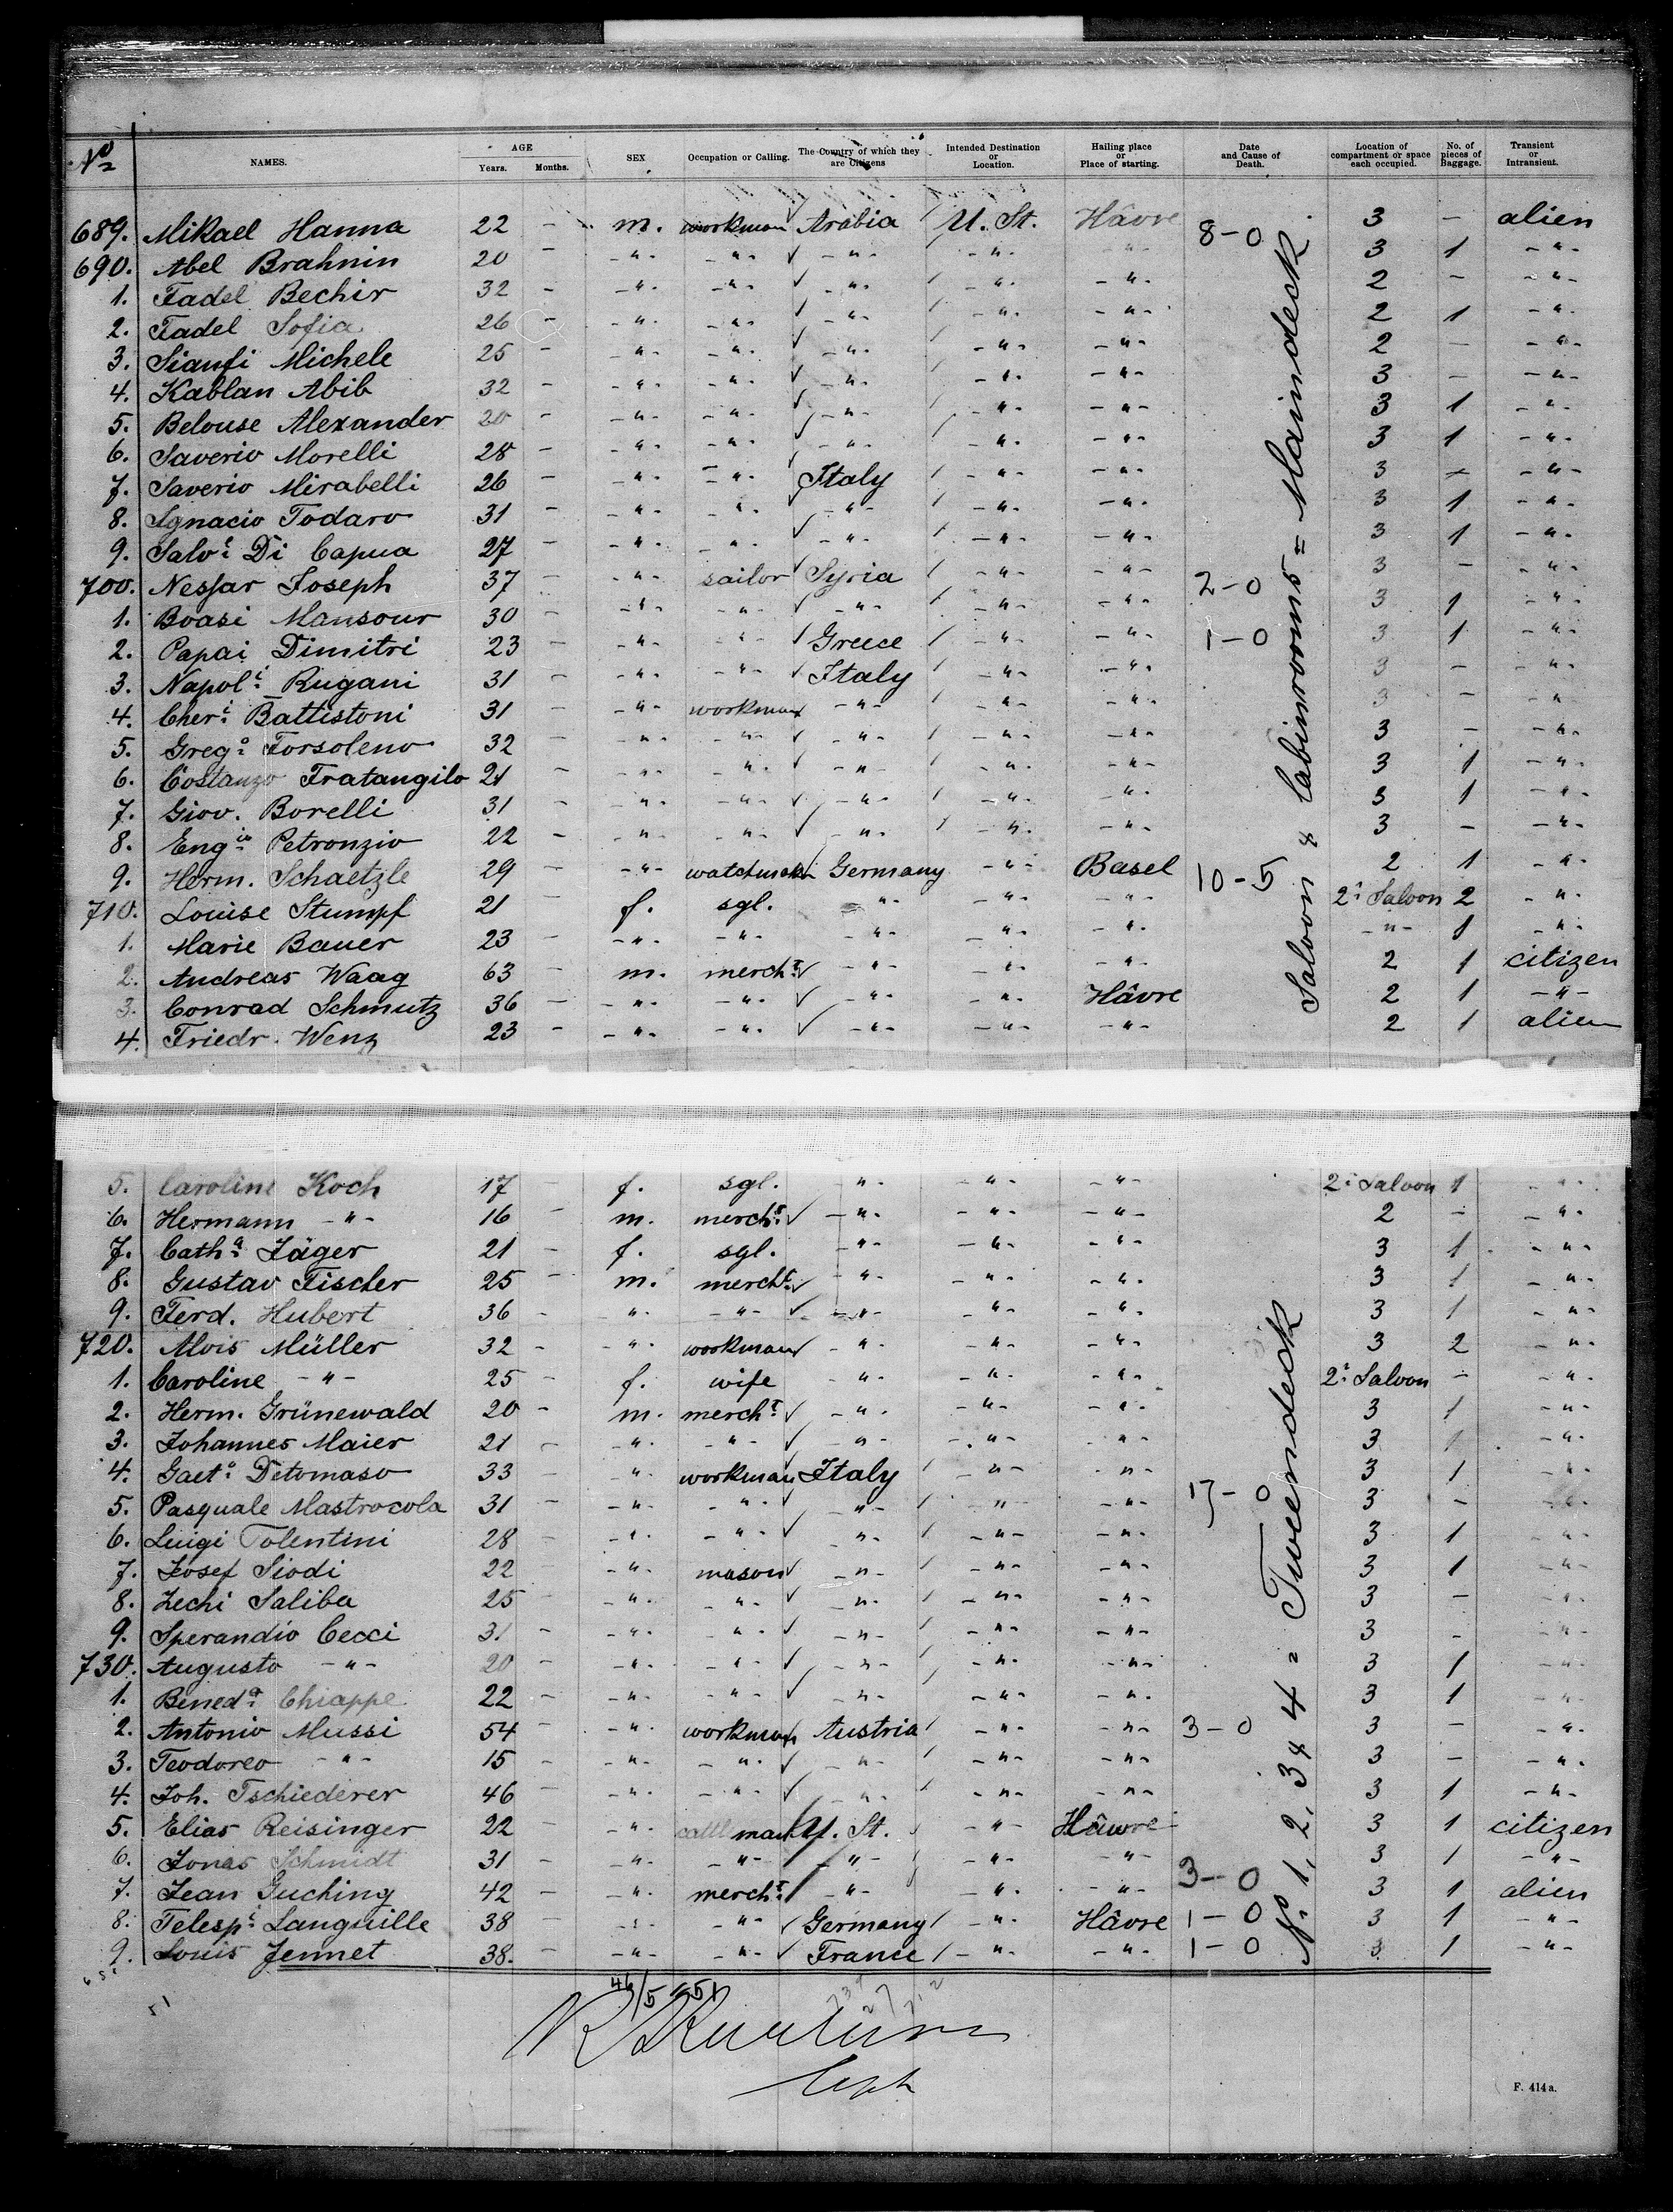 No NAMES. AGE Years. Months. SEX Occupation or Calling. The Country of which they are Citizens Intended Destination or Location. Hailing place or Place of starting. Date and Cause of Death. Location of compartment or space each occupied. No. of pieces of Baggage. Transient or Intransient.
689. Mikael Hanna 22 - m. workman Arabia U. St. Hâvre 8-0 3 - alien
690. Abel Brahnin 20 - -"- -"- -"- -"- -"- 3 1 -"-
1. Fadel Bechir 32 - -"- -"- -"- -"- -"- 2 - -"-
2. Fadel Sofia 26 - -"- -"- -"- -"- -"- 2 1 -"-
3. Siaufi Michele 25 - -"- -"- -"- -"- -"- 2 - -"-
4. Kablan Abib 32 - -"- -"- -"- -"- -"- 3 - -"-
5. Belouse Alexander 20 - -"- -"- -"- -"- -"- 3 1 -"-
6. Saverio Morelli 28 - -"- -"- -"- -"- -"- 3 1 -"-
7. Saverio Mirabelli 26 - -"- -"- Italy -"- -"- 3 - -"-
8. Ignacio Todaro 31 - -"- -"- -"- -"- -"- 3 1 -"-
9. Salv.e Di Capua 27 - -"- -"- -"- -"- -"- 3 1 -"-
700. Nessar Joseph 37 - -"- sailor Syria -"- -"- 2-0 3 - -"-
1. Boasi Mansour 30 - -"- -"- -"- -"- -"- 3 1 -"-
2. Papai Dimitri 23 - -"- -"- Greece -"- -"- 1-0 3 1 -"-
3. Napol.i Rugani 31 - -"- -"- Italy -"- -"- 3 - -"-
4. Cher.i Battistoni 31 - -"- workman -"- -"- -"- 3 - -"-
5. Greg.o Forsoleno 32 - -"- -"- -"- -"- -"- 3 - -"-
6. Costanzo Fratangilo 21 - -"- -"- -"- -"- -"- 3 1 -"-
7. Giov. Borelli 31 - -"- -"- -"- -"- -"- 3 1 -"-
8. Eng.io Petronzio 22 - -"- -"- -"- -"- -"- 3 - -"-
9. Herm. Schaetzle 29 - -"- watchmak Germany -"- Basel 10-5 2 1 -"-
710. Louise Stumpf 21 - f. sgl. -"- -"- -"- 2: Saloon 2 -"-
1. Marie Bauer 23 - -"- -"- -"- -"- -"- -"- 1 -"-
2. Andreas Waag 63 - m. merch.t -"- -"- -"- 2 1 citizen
3. Conrad Schmutz 36 - -"- -"- -"- -"- Hâvre 2 1 -"-
4. Friedr. Wenz 23 - -"- -"- -"- -"- -"- 2 1 alien
Saloon & Cabinrooms = Maindeck
5. Caroline Koch 17 - f. sgl. -"- -"- -"- 2: Saloon 1 -"-
6. Hermann -"- 16 - m. merch.t -"- -"- -"- 2 - -"-
7. Cath.a Jäger 21 - f. sgl. -"- -"- -"- 3 1 -"-
8. Gustav Fischer 25 - m. merch.t -"- -"- -"- 3 1 -"-
9. Ferd. Hubert 36 - -"- -"- -"- -"- -"- 3 1 -"-
720. Alois Müller 32 - -"- workman -"- -"- -"- 3 2 -"-
1. Caroline -"- 25 - f. wife -"- -"- -"- 2: Saloon - -"-
2. Herm. Grünewald 20 - m. merch.t -"- -"- -"- 3 1 -"-
3. Johannes Maier 21 - -"- -"- -"- -"- -"- 3 1 -"-
4. Gaet.o Detomaso 33 - -"- workman Italy -"- -"- 3 1 -"-
5. Pasquale Mastrocola 31 - -"- -"- -"- -"- -"- 17-0 3 - -"-
6. Luigi Tolentini 28 - -"- -"- -"- -"- -"- 3 1 -"-
7. Josef Siodi 22 - -"- mason -"- -"- -"- 3 1 -"-
8. Zechi Saliba 25 - -"- -"- -"- -"- -"- 3 - -"-
9. Sperandio Cecci 31 - -"- -"- -"- -"- -"- 3 - -"-
730. Augusto -"- 20 - -"- -"- -"- -"- -"- 3 1 -"-
1. Bened.a Chiappe 22 - -"- -"- -"- -"- -"- 3 1 -"-
2. Antonio Mussi 54 - -"- workman Austria -"- -"- 3-0 3 - -"-
3. Teodoreo -"- 15 - -"- -"- -"- -"- -"- 3 - -"-
4. Joh. Tschiederer 46 - -"- -"- -"- -"- -"- 3 1 -"-
5. Elias Reisinger 22 - -"- cattleman U. St. -"- Hâvre 3 1 citizen
6. Jonas Schmidt 31 - -"- -"- -"- -"- -"- 3-0 3 1 -"-
7. Jean Guching 42 - -"- merch.t -"- -"- -"- 3 1 alien
8. Telesp.i Languille 38 - -"- -"- Germany -"- Hâvre 1-0 3 1 -"-
9. Louis Jennet 38. - -"- -"- France -"- -"- 1-0 3 1 -"-
No 1, 2, 3 & 4 = Tweendeck
46/5 51
51
F. 414a.